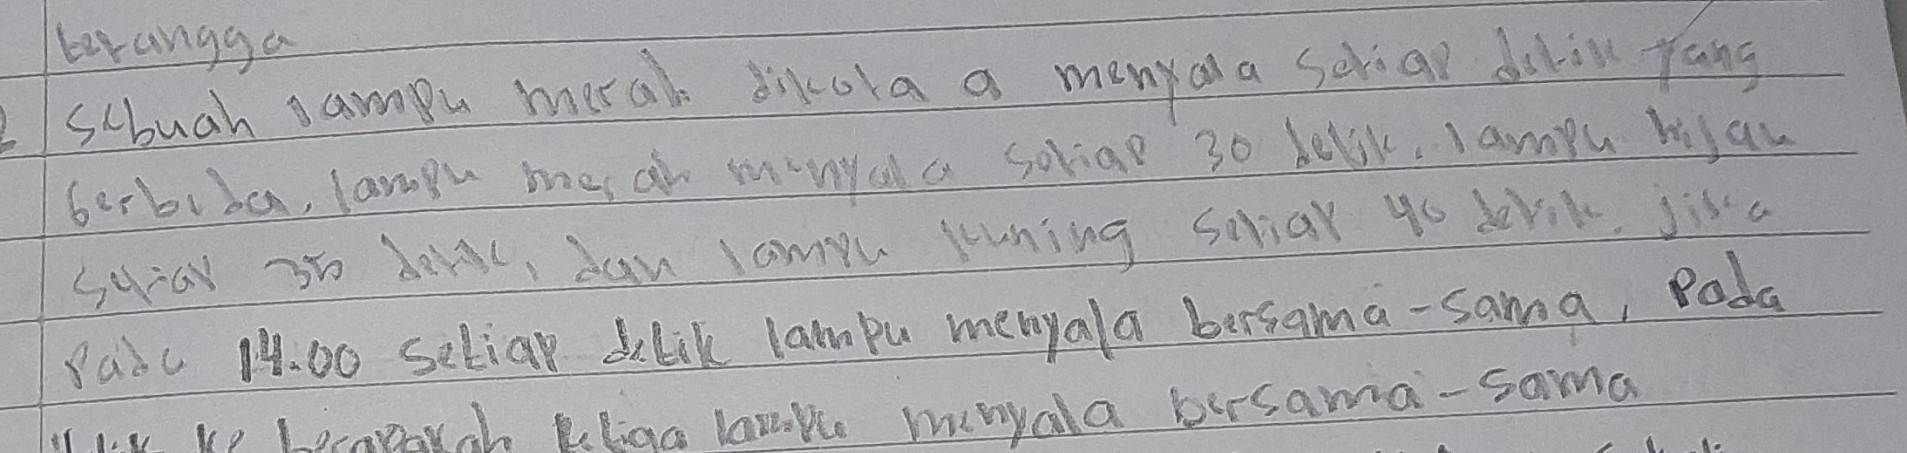 berangga
2 Sebuah lampu merah dikota a menyala setiap detik yang
berbeda, lampu merah menyala setiap 30 detik, lampu hijau
setiap detik, dan lampu kuning setiap 40 detik. jika
pada 14.00 setiap detik lampu menyala bersama-sama, Pada
ke berapakah ketiga lampu menyala bersama-sama